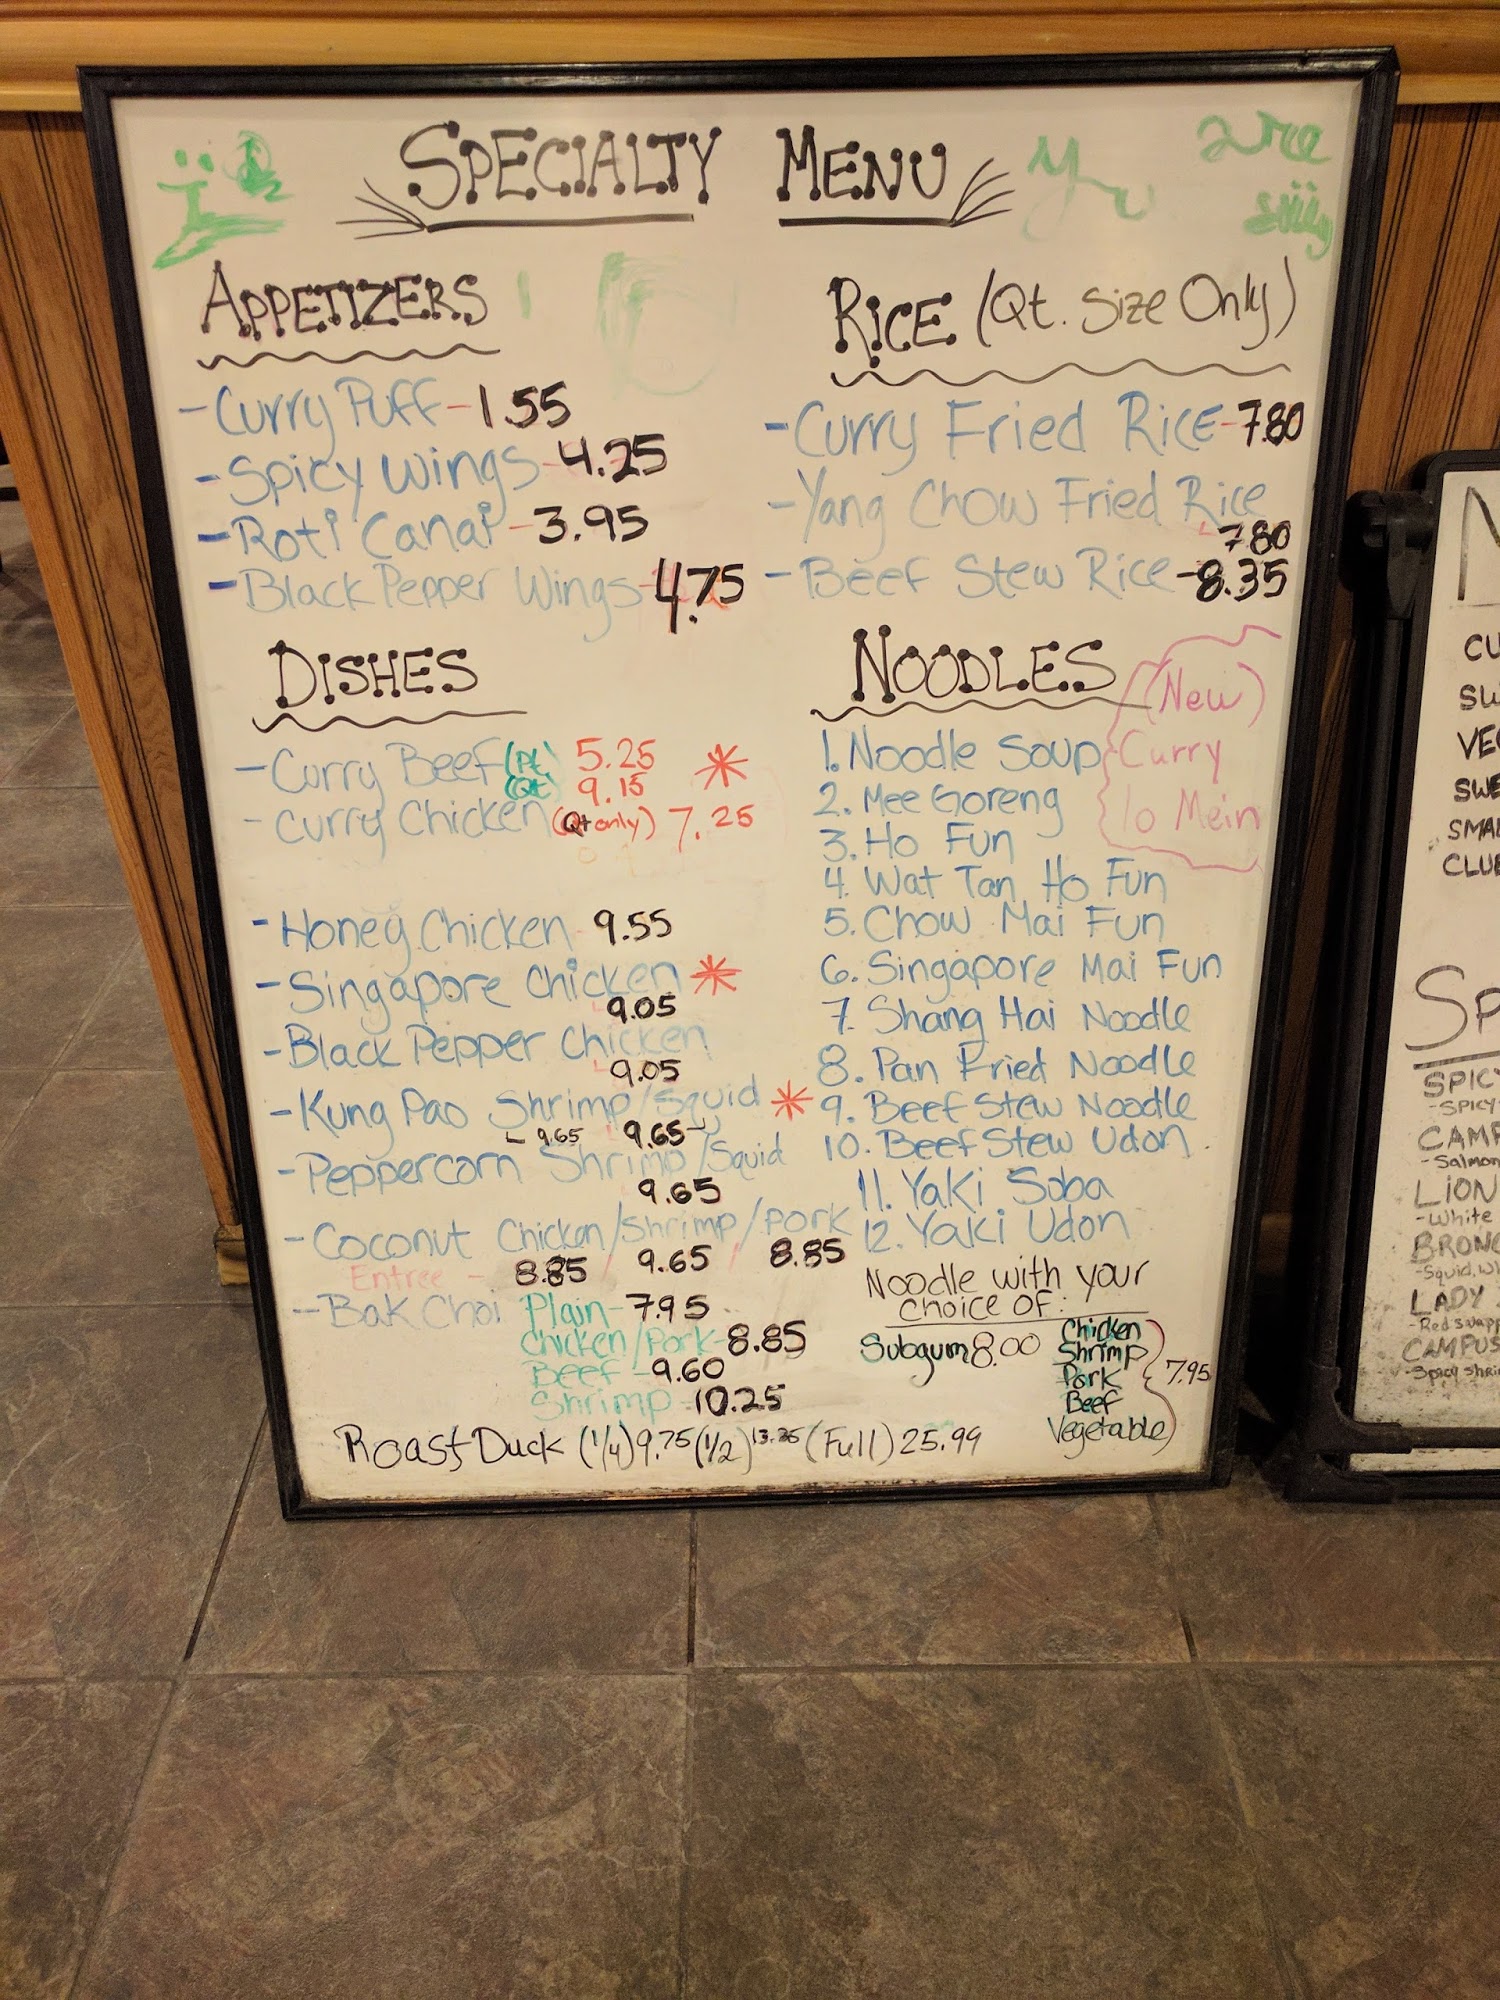 SPECIALTY MENU
APPETIZERS
- Curry Puff - 1.55
- Spicy Wings - 4.25
- Roti Canai - 3.95
- Black Pepper Wings - 4.75
DISHES
- Curry Beef (Pt.) 5.25 *
(Qt.) 9.15
- Curry Chicken (Qt only) 7.25
- Honey Chicken 9.55
- Singapore Chicken *
9.05
- Black Pepper Chicken
9.05
- Kung Pao Shrimp/Squid *
9.65 9.65
- Peppercorn Shrimp/Squid
9.65
- Coconut Chicken/Shrimp/Pork
Entree - 8.85 / 9.65 / 8.85
- Bak Choi Plain - 7.95
Chicken/Pork - 8.85
Beef - 9.60
Shrimp - 10.25
Roast Duck (1/4) 9.75 (1/2) (Full) 25.99
RICE (Qt. Size Only)
- Curry Fried Rice - 7.80
- Yang Chow Fried Rice
7.80
- Beef Stew Rice - 8.35
NOODLES
(New)
Curry
lo Mein
1. Noodle Soup
2. Mee Goreng
3. Ho Fun
4. Wat Tan Ho Fun
5. Chow Mai Fun
6. Singapore Mai Fun
7. Shang Hai Noodle
8. Pan Fried Noodle
9. Beef Stew Noodle
10. Beef Stew Udon
11. Yaki Soba
12. Yaki Udon
Noodle with your
choice of:
Subgum 8.00
Chicken
Shrimp
Pork 7.95
Beef
Vegetable
SPICY
Salmon
LION
-White
LADY
CAMPUS